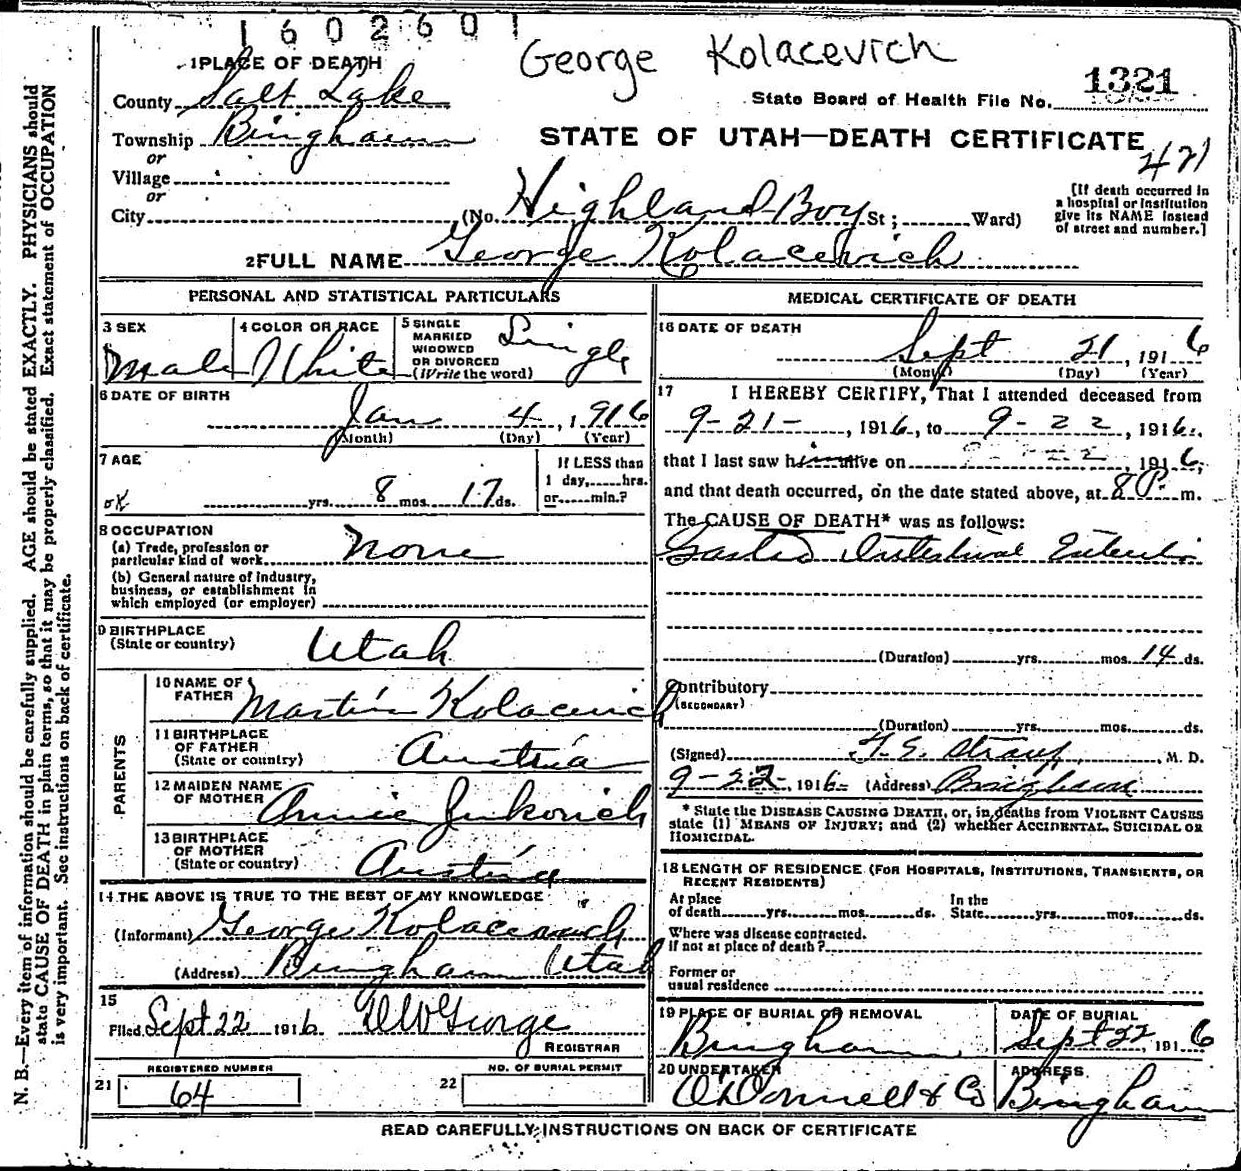 1602601
George Kolacevich
1 PLACE OF DEATH
1321
County Salt Lake
State Board of Health File No.
Township Bingham
STATE OF UTAH—DEATH CERTIFICATE
421
or
Village
or
City (No. Highland Boy St; Ward)
[If death occurred in
a hospital or institution
give its NAME instead
of street and number.]
2 FULL NAME George Kolacevich
PERSONAL AND STATISTICAL PARTICULARS
3 SEX
Male
4 COLOR OR RACE
White
5 SINGLE
MARRIED
WIDOWED
OR DIVORCED
(Write the word)
Single
6 DATE OF BIRTH
Jan 4, 1916
(Month) (Day) (Year)
7 AGE
ok yrs. 8 mos. 17 ds.
If LESS than
1 day, hrs.
or min.?
8 OCCUPATION
(a) Trade, profession or
particular kind of work none
(b) General nature of industry,
business, or establishment in
which employed (or employer)
9 BIRTHPLACE
(State or country) Utah
PARENTS
10 NAME OF
FATHER Martin Kolacevich
11 BIRTHPLACE
OF FATHER
(State or country) Austria
12 MAIDEN NAME
OF MOTHER Annie Jukovich
13 BIRTHPLACE
OF MOTHER
(State or country) Austria
14 THE ABOVE IS TRUE TO THE BEST OF MY KNOWLEDGE
(Informant) George Kolacevich
(Address) Bingham Utah
15
Filed Sept 22 1916
REGISTRAR
REGISTERED NUMBER
21 64
NO. OF BURIAL PERMIT
22
MEDICAL CERTIFICATE OF DEATH
16 DATE OF DEATH
Sept 21, 1916
(Month) (Day) (Year)
17 I HEREBY CERTIFY, That I attended deceased from
9-21-, 1916, to 9-22, 1916.
that I last saw him alive on 22, 1916,
and that death occurred, on the date stated above, at 8 P. m.
The CAUSE OF DEATH* was as follows:
Gastro Intestinal
(Duration) yrs. mos. 14 ds.
Contributory
(SECONDARY)
(Duration) yrs. mos. ds.
(Signed) F. E. Straup, M. D.
9-22-, 1916 (Address) Bingham
* State the DISEASE CAUSING DEATH, or, in deaths from VIOLENT CAUSES
state (1) MEANS OF INJURY; and (2) whether ACCIDENTAL, SUICIDAL OR
HOMICIDAL.
18 LENGTH OF RESIDENCE (FOR HOSPITALS, INSTITUTIONS, TRANSIENTS, OR
RECENT RESIDENTS)
At place In the
of death yrs. mos. ds. State yrs. mos. ds.
Where was disease contracted.
if not at place of death?
Former or
usual residence
19 PLACE OF BURIAL OR REMOVAL
Bingham
DATE OF BURIAL
Sept 22, 1916
20 UNDERTAKER
O'Donnell & Co
ADDRESS
Bingham
READ CAREFULLY INSTRUCTIONS ON BACK OF CERTIFICATE
N. B.—Every item of information should be carefully supplied. AGE should be stated EXACTLY. PHYSICIANS should
state CAUSE OF DEATH in plain terms, so that it may be properly classified. Exact statement of OCCUPATION
is very important. See instructions on back of certificate.